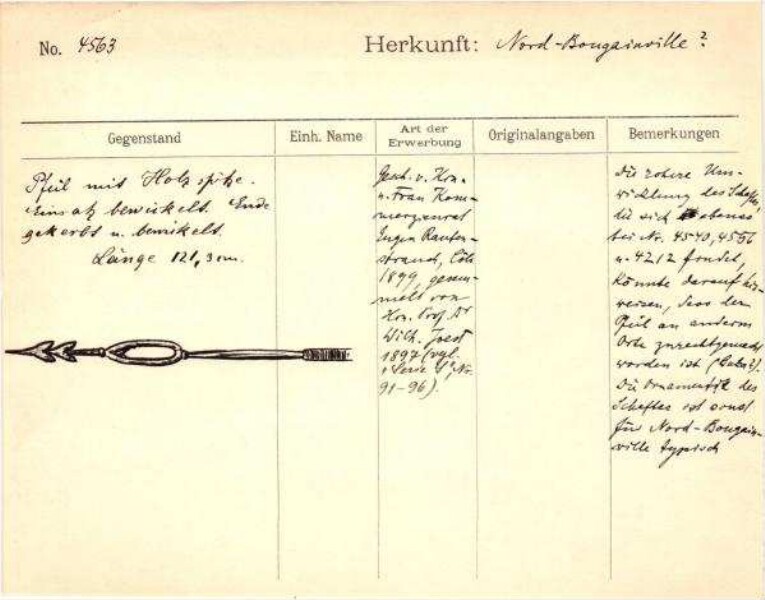 No. 4563 Herkunft: Nord-Bougainville?
Gegenstand Einh. Name Art der Erwerbung Originalangaben Bemerkungen
Pfeil mit Holzspitze.
Einsatz bewickelt. Ende
gekerbt u. bewickelt.
Länge 121,3 cm.
Gesch. v. Hrn.
u. Frau Kom-
merzienrat
Eugen Rauten-
strauch, Cöln
1899, gesam-
melt von
Hrn. Prof. Dr
Wilh. Joest
1897 (vgl.
"Serie", Nr.
91-96).
Die rohere Um-
wicklung des Schaftes,
die sich ebenso
bei Nr. 4540, 4556
u. 4212 findet,
könnte darauf hin-
weisen, dass der
Pfeil an anderem
Orte zurechtgemacht
worden ist (Buka?).
Die Ornamentik des
Schaftes ist sonst
für Nord-Bougain-
ville typisch